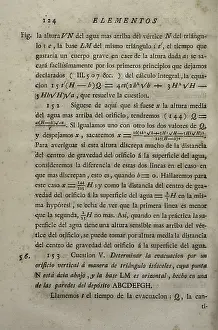 124 ELEMENTOS
Fig. la altura VN del agua mas arriba del vértice N del triángu-
lo; c, la base LM del mismo triángulo; t, el tiempo que
gastaría un cuerpo grave en caer de la altura dada a; se
sacará facilísimamente por los primeros principios que dejamos
declarados (III. 507 &c.) del cálculo integral, la equa-
cion
, que resuelve la cuestion.
152 Síguese de aquí que si fuese x la altura media
del agua mas arriba del orificio, tendremos (144)
Si igualamos uno con otro los dos valores de Q,
y despejamos x, sacaremos x =
Para averiguar si esta altura discrepa mucho de la distancia
del centro de gravedad del orificio á la superficie del agua,
consideremos la diferencia de estas dos lineas en el caso en
que mas discrepan, esto es, quando h = o. Hallarémos para
este caso x = H y como la distancia del centro de gra-
vedad del orificio á la superficie del agua = H en la mis-
ma hypótesi, se echa de ver que la primera linea es menor
que la segunda, H no mas. Así, quando en la práctica la su-
perficie del agua tiene una altura sensible mas arriba del vér-
tice del orificio, se puede tomar por altura media la distancia
del centro de gravedad del orificio á la superficie del agua.
56. 153 Cuestion V. Determinar la evacuacion por un
orificio vertical á manera de triángulo isósceles, cuya punta
N está ácia abajo, y la base LM es orizontal, hecho en una
de las paredes del depósito ABCDEFGH.
Llamemos t el tiempo de la evacuacion; Q, la can-
ti-